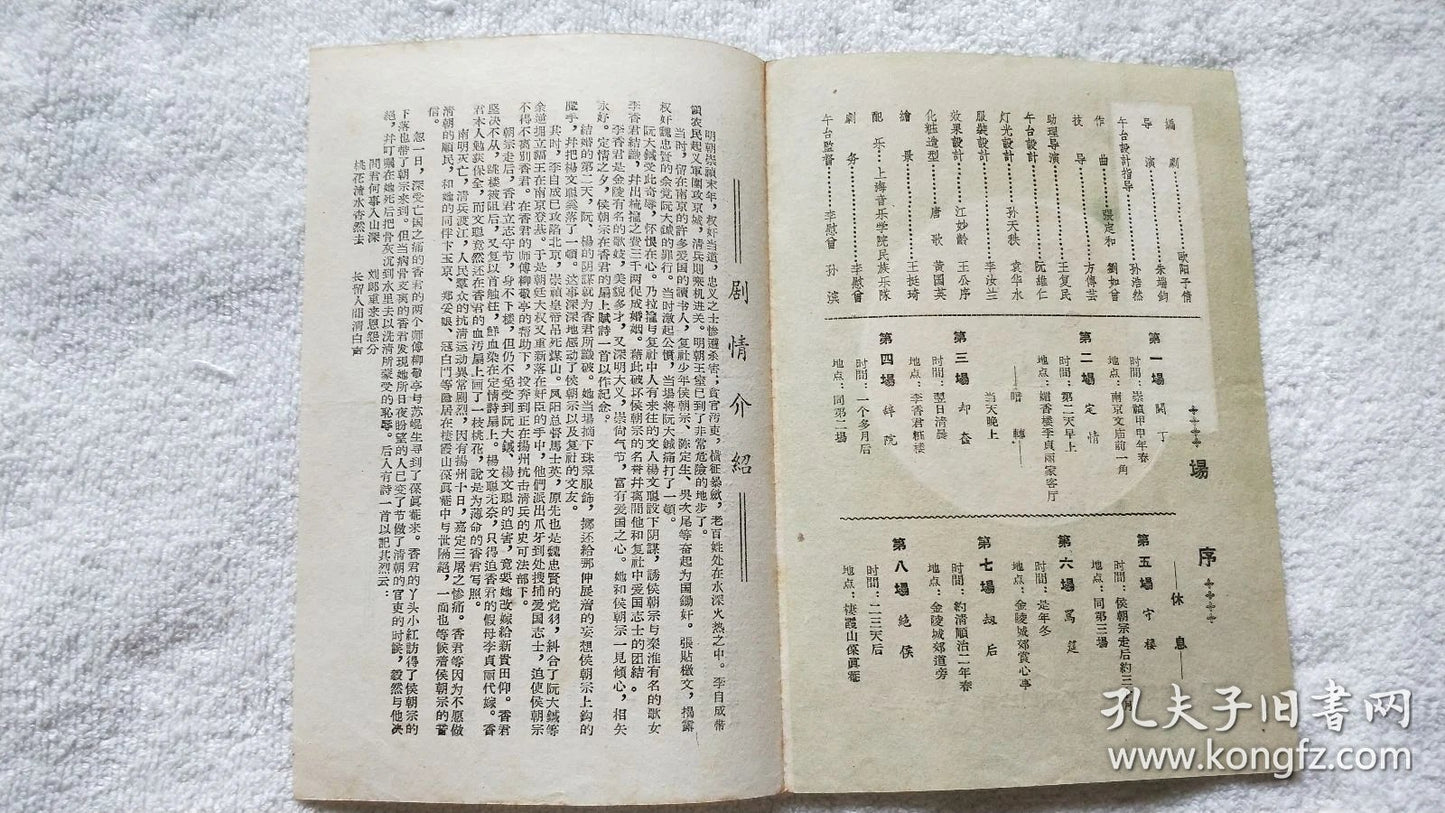 編劇……歐阳子倩
导演……朱端鈞
午台設計指导……孙浩然
作曲……張定和 劉如曾
技导……方傳芸
助理导演……王复民
午台設計……阮維仁
灯光設計……孙天秩 袁华水
服裝設計……李汝兰
效果設計……江妙齡 王公序
化粧造型……唐歌 黄國英
繪景……王挺琦
配乐……上海音乐学院民族乐隊
劇务……李慰曾
午台監督……李慰曾 孙滨
場序
第一場 鬧丁
时間：崇禎甲甲年春
地点：南京文庙前一角
第二場 定情
时間：第二天早上
地点：媚香楼李貞丽家客厅
——暗轉——
当天晚上
第三場 却奩
时間：翌日清晨
地点：李香君粧楼
第四場 辞院
时間：一个多月后
地点：同第二場
——休息——
第五場 守楼
时間：侯朝宗走后約三
地点：同第三場
第六場 罵筵
时間：是年冬
地点：金陵城郊賞心亭
第七場 刼后
时間：約清順治二年春
地点：金陵城郊道旁
第八場 絶侯
时間：二三天后
地点：棲霞山葆眞菴
剧情介紹
明朝崇禎末年，权奸当道，忠义之士慘遭杀害；貪官污吏，橫征暴斂，老百姓处在水深火热之中。李自成带
領农民起义軍圍攻京城，清兵則乘机进关。明朝王室已到了非常危險的地步了。
当时，留在南京的許多爱国的讀书人，复社少年侯朝宗、陈定生、吳次尾等奋起为国鋤奸。張貼檄文，揭露
权奸魏忠賢的余党阮大鋮的罪行。当时激起公憤，当場将阮大鋮痛打了一頓。
阮大鋮受此奇辱，怀恨在心。乃拉攏与复社中人有来往的文人楊文聰設下阴謀，誘侯朝宗与秦淮有名的歌女
李香君結識，幷出梳攏之費三千两促成婚姻。藉此破坏侯朝宗的名誉幷离間他和复社中爱国志士的团結。
李香君是金陵有名的歌妓，美貌多才，又深明大义，崇尙气节，富有爱国之心。她和侯朝宗一見傾心，相矢
永好。定情之夕，侯朝宗在香君的扇上賦詩一首以作紀念。
結婚的第二天，阮、楊的阴謀就为香君所識破。她当場摘下珠翠服飾，擲还給那伸展着的妄想侯朝宗上鈎的
魔手，幷把楊文聰奚落了一頓。这事深深地感动了侯朝宗以及复社的文友。
其时，李自成已攻陷北京，崇禎皇帝吊死煤山。凤阳总督馬士英，原先也是魏忠賢的党羽，糾合了阮大鋮等
余逆拥立福王在南京登基。于是朝廷大权又重新落在奸臣的手中，他們派出爪牙到处搜捕爱国志士，迫使侯朝宗
不得不离別香君。在香君的师傅柳敬亭的帮助下，投奔到正在揚州抗击清兵的史可法部下。
朝宗走后，香君立志守节，身不下楼，但仍不免受到阮大鋮、楊文聰的迫害，竟要她改嫁給新貴田仰。香君
坚决不从，跳楼被阻后，又复以首触柱，鮮血染在定情詩扇上。楊文聰无奈，只得迫香君的假母李貞丽代嫁。香
君本人勉获保全，而文聰竟然还在香君的血汚扇上画了一枝桃花，說是为薄命的香君写照。
南明灭亡，清兵渡江，人民羣众的抗清运动異常剧烈，因有揚州十日，嘉定三屠之慘痛。香君等因为不愿做
清朝的順民，和她的同伴卞玉京，郑妥娘，寇白門等隐居在棲霞山葆眞菴中与世隔絕，一面也等候着侯朝宗的音
信。
忽一日，深受亡国之痛的香君的两个师傅柳敬亭与苏崐生尋到了葆眞菴来。香君的丫头小紅訪得了侯朝宗的
下落也带了朝宗来到。但当病骨支离的香君发現她所日夜盼望的人已变了节做了清朝的官吏的时候，毅然与他决
絕，幷叮嘱在她死后把骨灰沉到水里去以洗清所蒙受的恥辱。后人有詩一首以記其烈云：
問君何事入山深 刘郎重来恩怨分
桃花流水杳然去 长留人間淸白声
孔夫子旧书网
www.kongfz.com